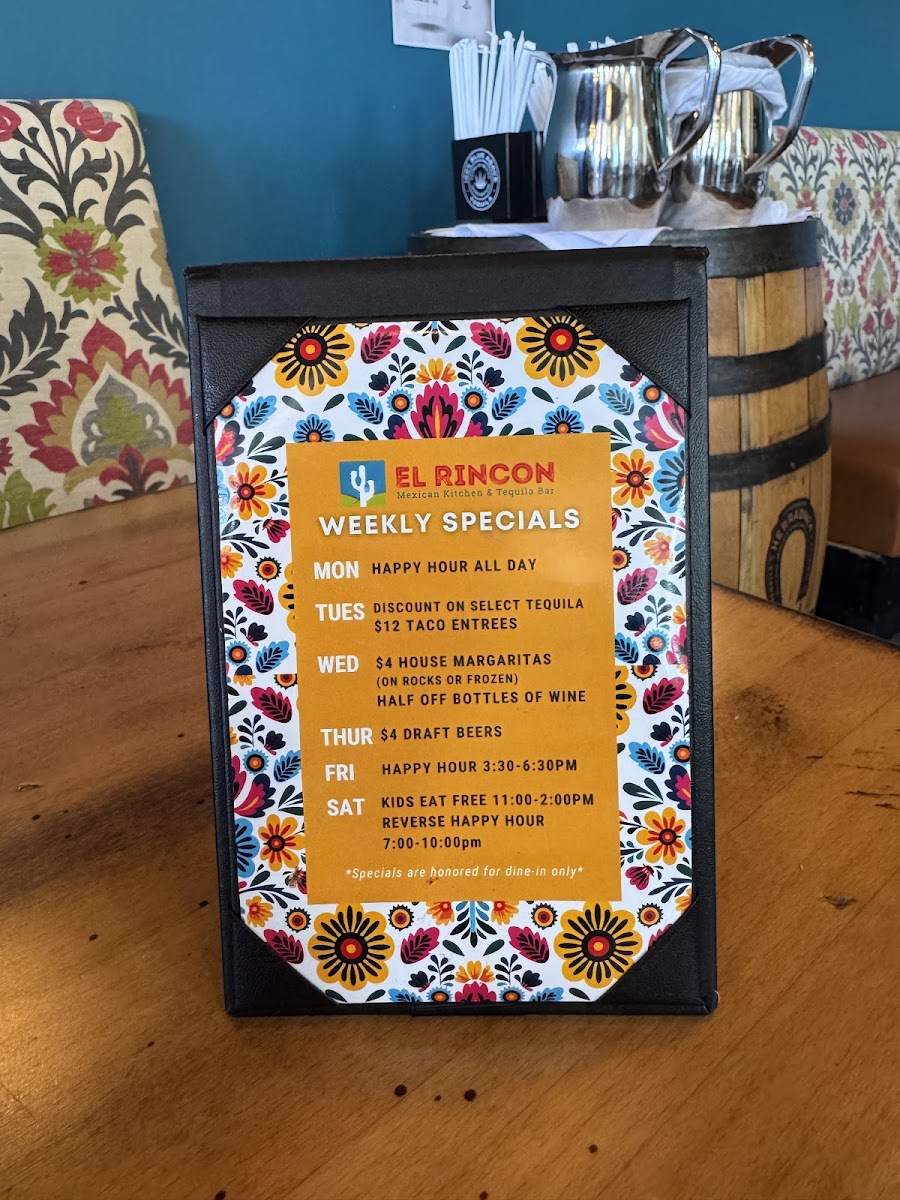 EL RINCON
Mexican Kitchen & Tequila Bar
WEEKLY SPECIALS
MON HAPPY HOUR ALL DAY
TUES DISCOUNT ON SELECT TEQUILA
$12 TACO ENTREES
WED $4 HOUSE MARGARITAS
(ON ROCKS OR FROZEN)
HALF OFF BOTTLES OF WINE
THUR $4 DRAFT BEERS
FRI HAPPY HOUR 3:30-6:30PM
SAT KIDS EAT FREE 11:00-2:00PM
REVERSE HAPPY HOUR
7:00-10:00pm
*Specials are honored for dine-in only*